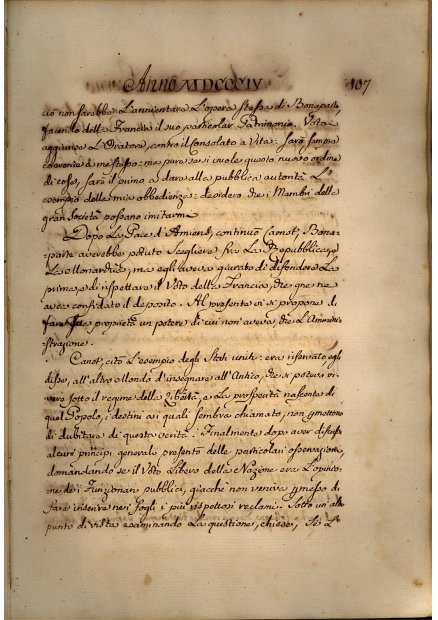 Anno MDCCCIV 107
ciò non sarebbe l'annientare l'opera stessa di Bonaparte,
facendo della Francia il suo particolar Patrimonio. Votai
aggiunse l'Oratore, contro il Consolato a Vita: sarò sempre
coerente a me stesso: ma pure se si vuole questo nuovo ordine
di cose, sarò il primo a dare alla pubblica autorità l'e-
sempio della mia obbedienza: desidero che i Membri della
gran Società possano imitarme.
Dopo la Pace d'Amiens, continuò Carnot, Bona-
parte averebbe potuto scegliere fra la Repubblica, e
la Monarchia, ma egli aveva giurato di difendere la
prima, e di rispettare il Voto della Francia, che gne ne
avea confidato il deposito. Al presente vi si propone di
fare proprietà un potere di cui non aveva, che l'Ammini-
strazione.
Canot, citò l'esempio degli Stati uniti: era riservato egli
disse, all'altro Mondo d'insegnare all'Antico, che si poteva vi-
vere sotto il regime della Libertà, e la prosperità nascente di
quel Popolo, i destini ai quali sembra chiamato, non
di dubitare di questa verità. Finalmente dopo aver discusso
alcuni principi generali presentò delle particolari osservazioni,
domandando se il Voto Libero della Nazione era l'opinio-
ne de i Funzionari pubblici, giacchè non veniva
fare inserire nei fogli i più rispettosi reclami. Sotto un altro
punto di vista esaminando la questione, chiese, Se l'